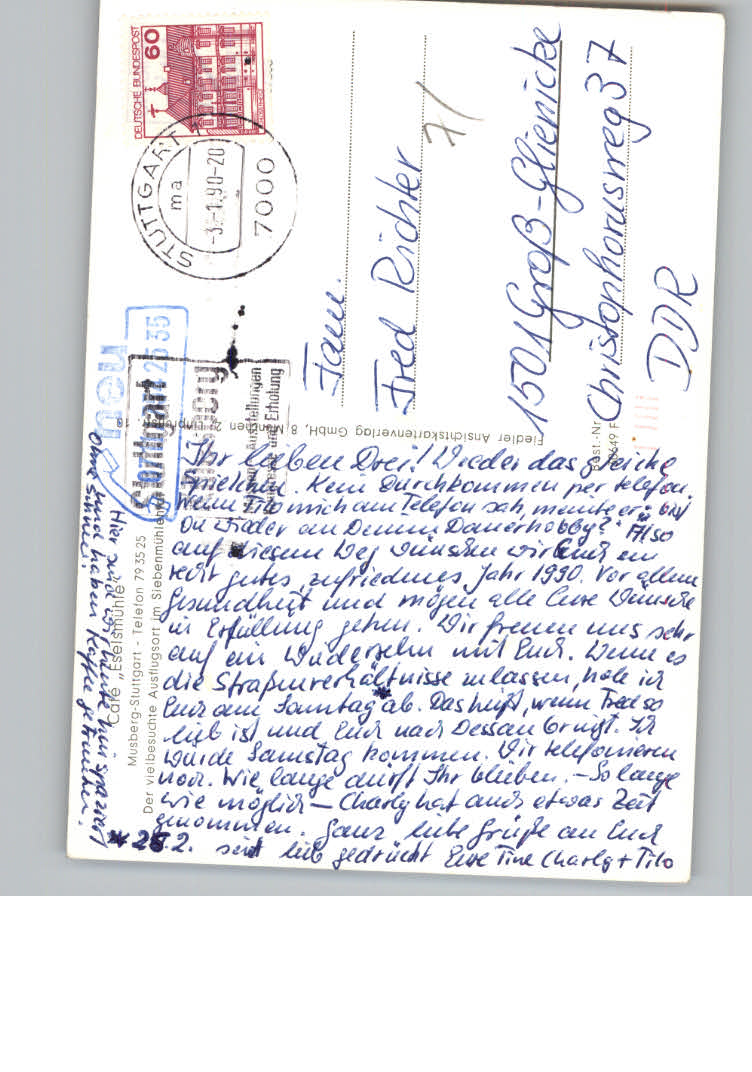 Ihr lieben Drei! Wieder das gleiche
Spielchen. Kein Durchkommen per Telefon.
Wenn Tilo mich am Telefon sah, meinte er: bist
Du wieder an Deinem Dauerhobby? Also
auf diesem Weg wünschen wir Euch ein
recht gutes, zufriedenes Jahr 1990. Vor allem
Gesundheit und mögen alle Eure Wünsche
in Erfüllung gehen. Wir freuen uns sehr
auf ein Wiedersehn mit Euch. Wenn es
die Straßenverhältnisse zulassen, hole ich
Euch am * Samstag ab. Das heißt, wenn Fred so
lieb ist und Euch nach Dessau bringt. Ich
würde Samstag kommen. Wir telefonieren
noch. Wie lange dürft Ihr bleiben. – So lange
wie möglich – Charly hat auch etwas Zeit
genommen. Ganz liebe Grüße an Euch
* 25.2. seid lieb gedrückt Eure Tine Charly + Tilo
Hier sind wir heute hin spaziert
ohne Hund haben Kaffee getrunken.
Café "Eselsmühle"
Musberg-Stuttgart - Telefon 79 35 25
Der vielbesuchte Ausflugsort im Siebenmühlental
Fiedler Ansichtskartenverlag GmbH, 8 München 2,
Best.-Nr.
DEUTSCHE BUNDESPOST
60
STUTTGART
ma
-3.-1.90-20
7000
neu
Stuttgart
Ausstellungen
und Erholung
Fam.
Fred Richter
1501 Groß-Glienicke
Christophorusweg 37
DDR